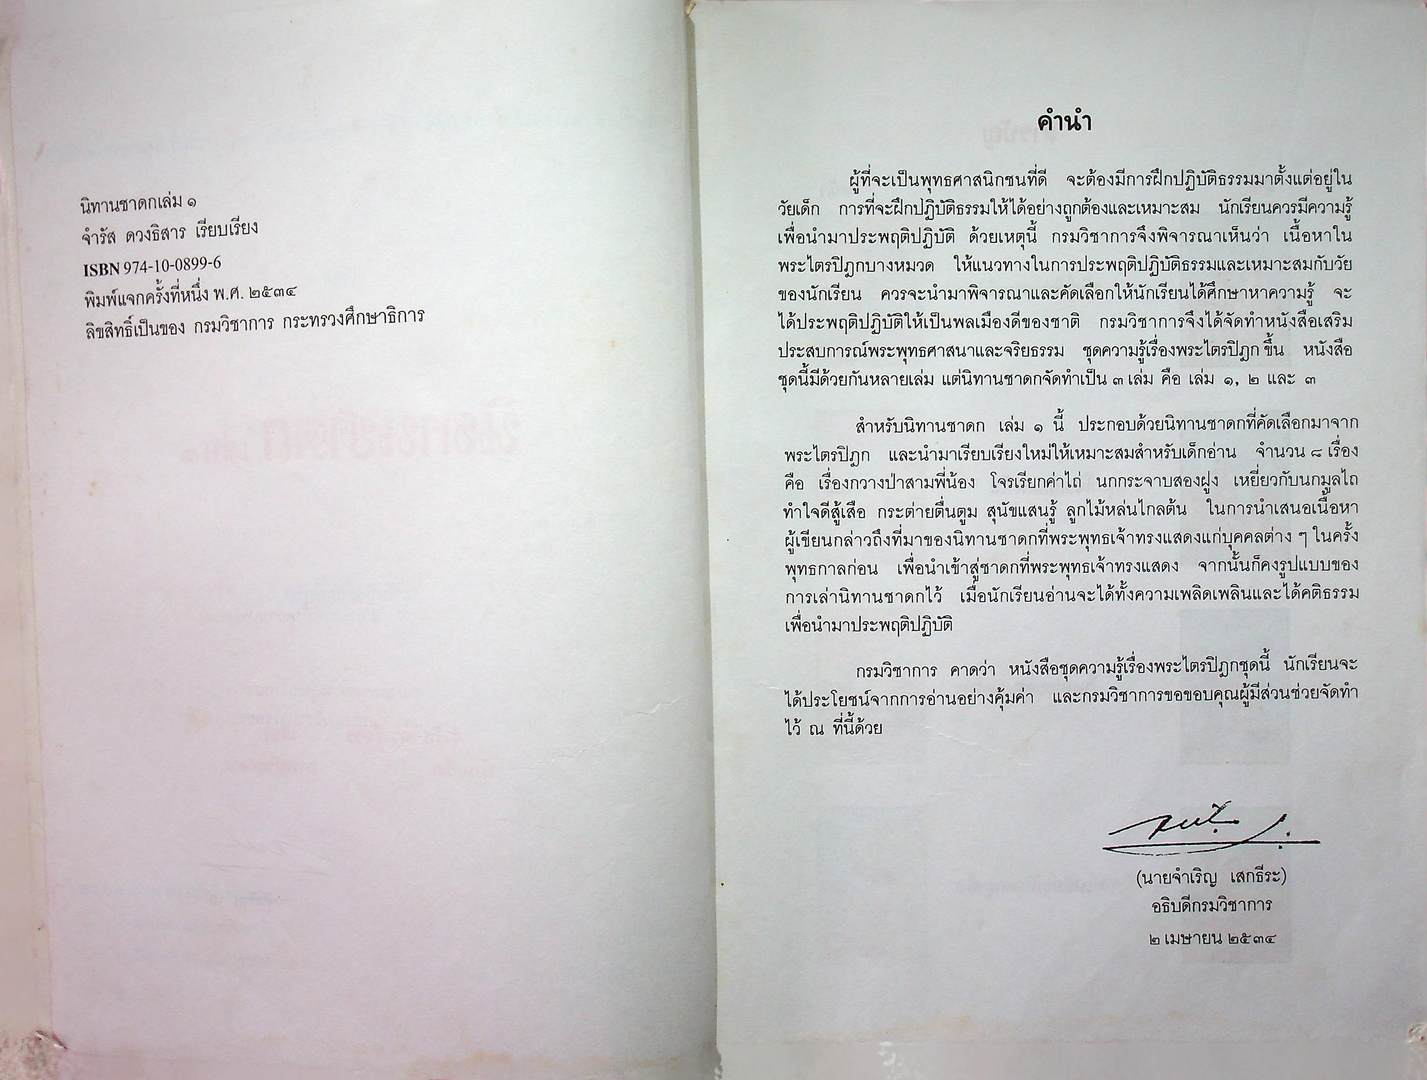 นิทานชาดกเล่ม ๑
จำรัส ดวงธิสาร เรียบเรียง
ISBN 974-10-0899-6
พิมพ์แจกครั้งที่หนึ่ง พ.ศ. ๒๕๓๔
ลิขสิทธิ์เป็นของ กรมวิชาการ กระทรวงศึกษาธิการ
คำนำ
ผู้ที่จะเป็นพุทธศาสนิกชนที่ดี จะต้องมีการฝึกปฏิบัติธรรมมาตั้งแต่อยู่ใน
วัยเด็ก การที่จะฝึกปฏิบัติธรรมให้ได้อย่างถูกต้องและเหมาะสม นักเรียนควรมีความรู้
เพื่อนำมาประพฤติปฏิบัติ ด้วยเหตุนี้ กรมวิชาการจึงพิจารณาเห็นว่า เนื้อหาใน
พระไตรปิฎกบางหมวด ให้แนวทางในการประพฤติปฏิบัติธรรมและเหมาะสมกับวัย
ของนักเรียน ควรจะนำมาพิจารณาและคัดเลือกให้นักเรียนได้ศึกษาหาความรู้ จะ
ได้ประพฤติปฏิบัติให้เป็นพลเมืองดีของชาติ กรมวิชาการจึงได้จัดทำหนังสือเสริม
ประสบการณ์พระพุทธศาสนาและจริยธรรม ชุดความรู้เรื่องพระไตรปิฎก ขึ้น หนังสือ
ชุดนี้มีด้วยกันหลายเล่ม แต่นิทานชาดกจัดทำเป็น ๓ เล่ม คือ เล่ม ๑, ๒ และ ๓
สำหรับนิทานชาดก เล่ม ๑ นี้ ประกอบด้วยนิทานชาดกที่คัดเลือกมาจาก
พระไตรปิฎก และนำมาเรียบเรียงใหม่ให้เหมาะสมสำหรับเด็กอ่าน จำนวน ๘ เรื่อง
คือ เรื่องกวางป่าสามพี่น้อง โจรเรียกค่าไถ่ นกกระจาบสองฝูง เหยี่ยวกับนกมูลไถ
ทำใจดีสู้เสือ กระต่ายตื่นตูม สุนัขแสนรู้ ลูกไม้หล่นไกลต้น ในการนำเสนอเนื้อหา
ผู้เขียนกล่าวถึงที่มาของนิทานชาดกที่พระพุทธเจ้าทรงแสดงแก่บุคคลต่าง ๆ ในครั้ง
พุทธกาลก่อน เพื่อนำเข้าสู่ชาดกที่พระพุทธเจ้าทรงแสดง จากนั้นก็คงรูปแบบของ
การเล่านิทานชาดกไว้ เมื่อนักเรียนอ่านจะได้ทั้งความเพลิดเพลินและได้คติธรรม
เพื่อนำมาประพฤติปฏิบัติ
กรมวิชาการ คาดว่า หนังสือชุดความรู้เรื่องพระไตรปิฎกชุดนี้ นักเรียนจะ
ได้ประโยชน์จากการอ่านอย่างคุ้มค่า และกรมวิชาการขอขอบคุณผู้มีส่วนช่วยจัดทำ
ไว้ ณ ที่นี้ด้วย
(นายจำเริญ เสกธีระ)
อธิบดีกรมวิชาการ
๒ เมษายน ๒๕๓๔